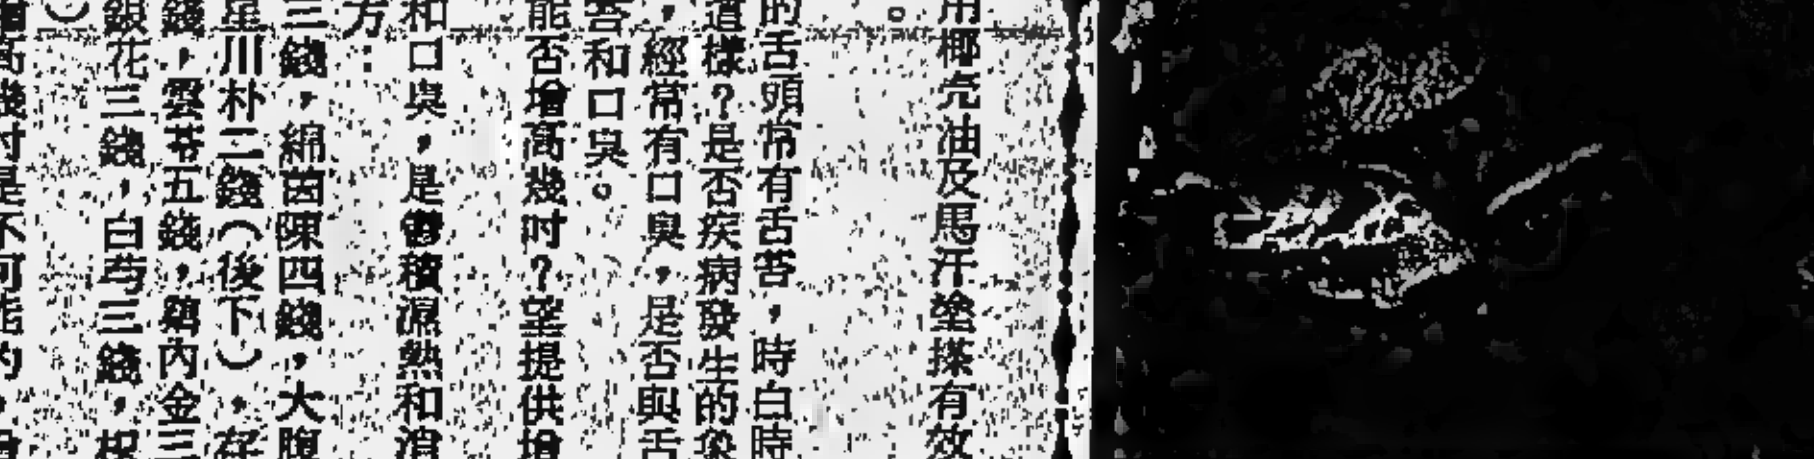 用椰壳油及馬汗塗搽有效
。
的舌頭常有舌苔，時白時
道樣？是否疾病發生的
，經常有口臭，是否與舌
苔和口臭。
能否增高幾吋？望提供增
和口臭，是鬱積濕熱和消
方：
三錢，綿茵陳四錢，大腹
川朴二錢（後下），
錢，雲苓五錢，雞內金三
銀花三錢，白芍三錢，枳
）
高幾吋是不可能的，